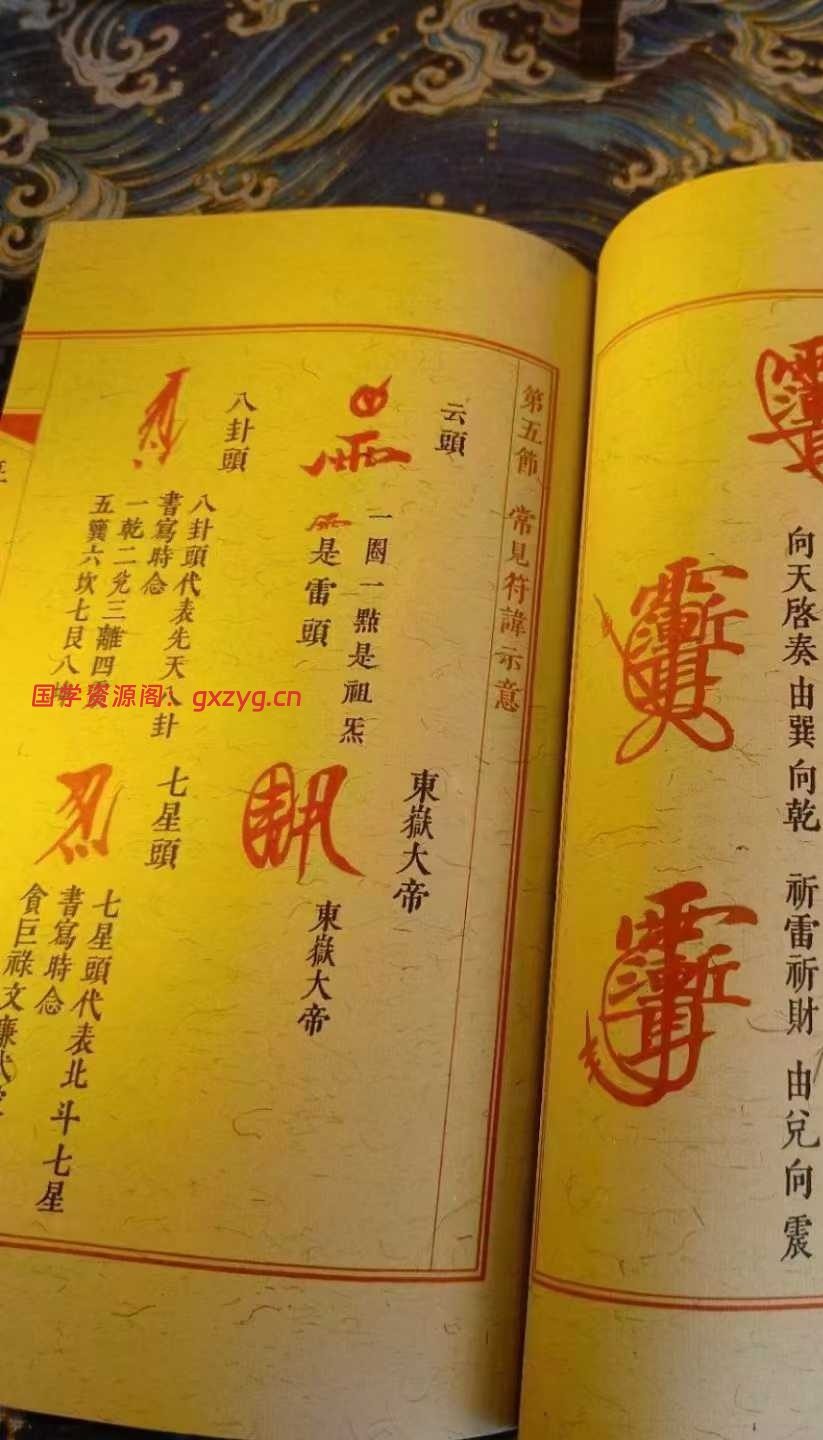 向天啓奏 由巽向乾
祈雷祈財 由兌向震
第五節 常見符諱示意
云頭
一圈一點是祖炁
是雷頭
東嶽大帝
東嶽大帝
八卦頭
八卦頭代表先天八卦
書寫時念
一乾二兌三離四震
五巽六坎七艮八
七星頭
七星頭代表北斗七星
書寫時念
貪巨祿文廉武
国学资源阁：gxzyg.cn